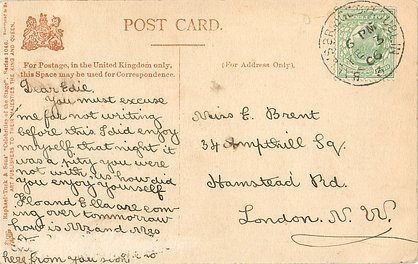 POST CARD.
For Postage, in the United Kingdom only,
this Space may be used for Correspondence.
(For Address Only)
Dear Edie
You must excuse
me for not writing
before this I did enjoy
myself that night it
was a pity you were
not with us how did
you enjoy yourself
Flo and Ella are com
ing over tommorrow
how is Mr and Mrs
here from you soon
Miss E. Brent
34 Ampthill Sq.
Hamstead Rd.
London. N. W.
6 PM
Raphael Tuck & Sons'
ART PUBLISHERS TO THEIR MAJESTIES THE KING AND QUEEN.